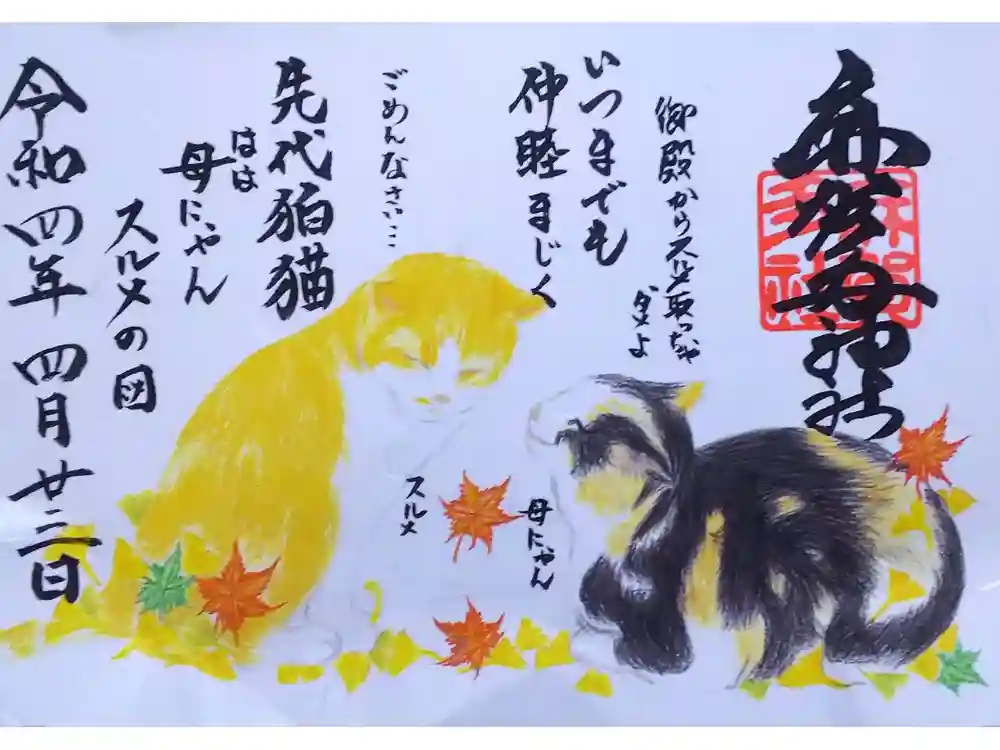 神社
御殿からスルメ取っちゃ
ダメよ
いつまでも
仲睦まじく
ごめんなさい…
先代狛猫
はは
母にゃん
スルメの図
令和四年 四月 廿二日
母にゃん
スルメ